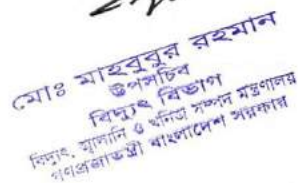 মোঃ মাহবুবুর রহমান
উপসচিব
বিদ্যুৎ বিভাগ
বিদ্যুৎ, জ্বালানি ও খনিজ সম্পদ মন্ত্রণালয়
গণপ্রজাতন্ত্রী বাংলাদেশ সরকার